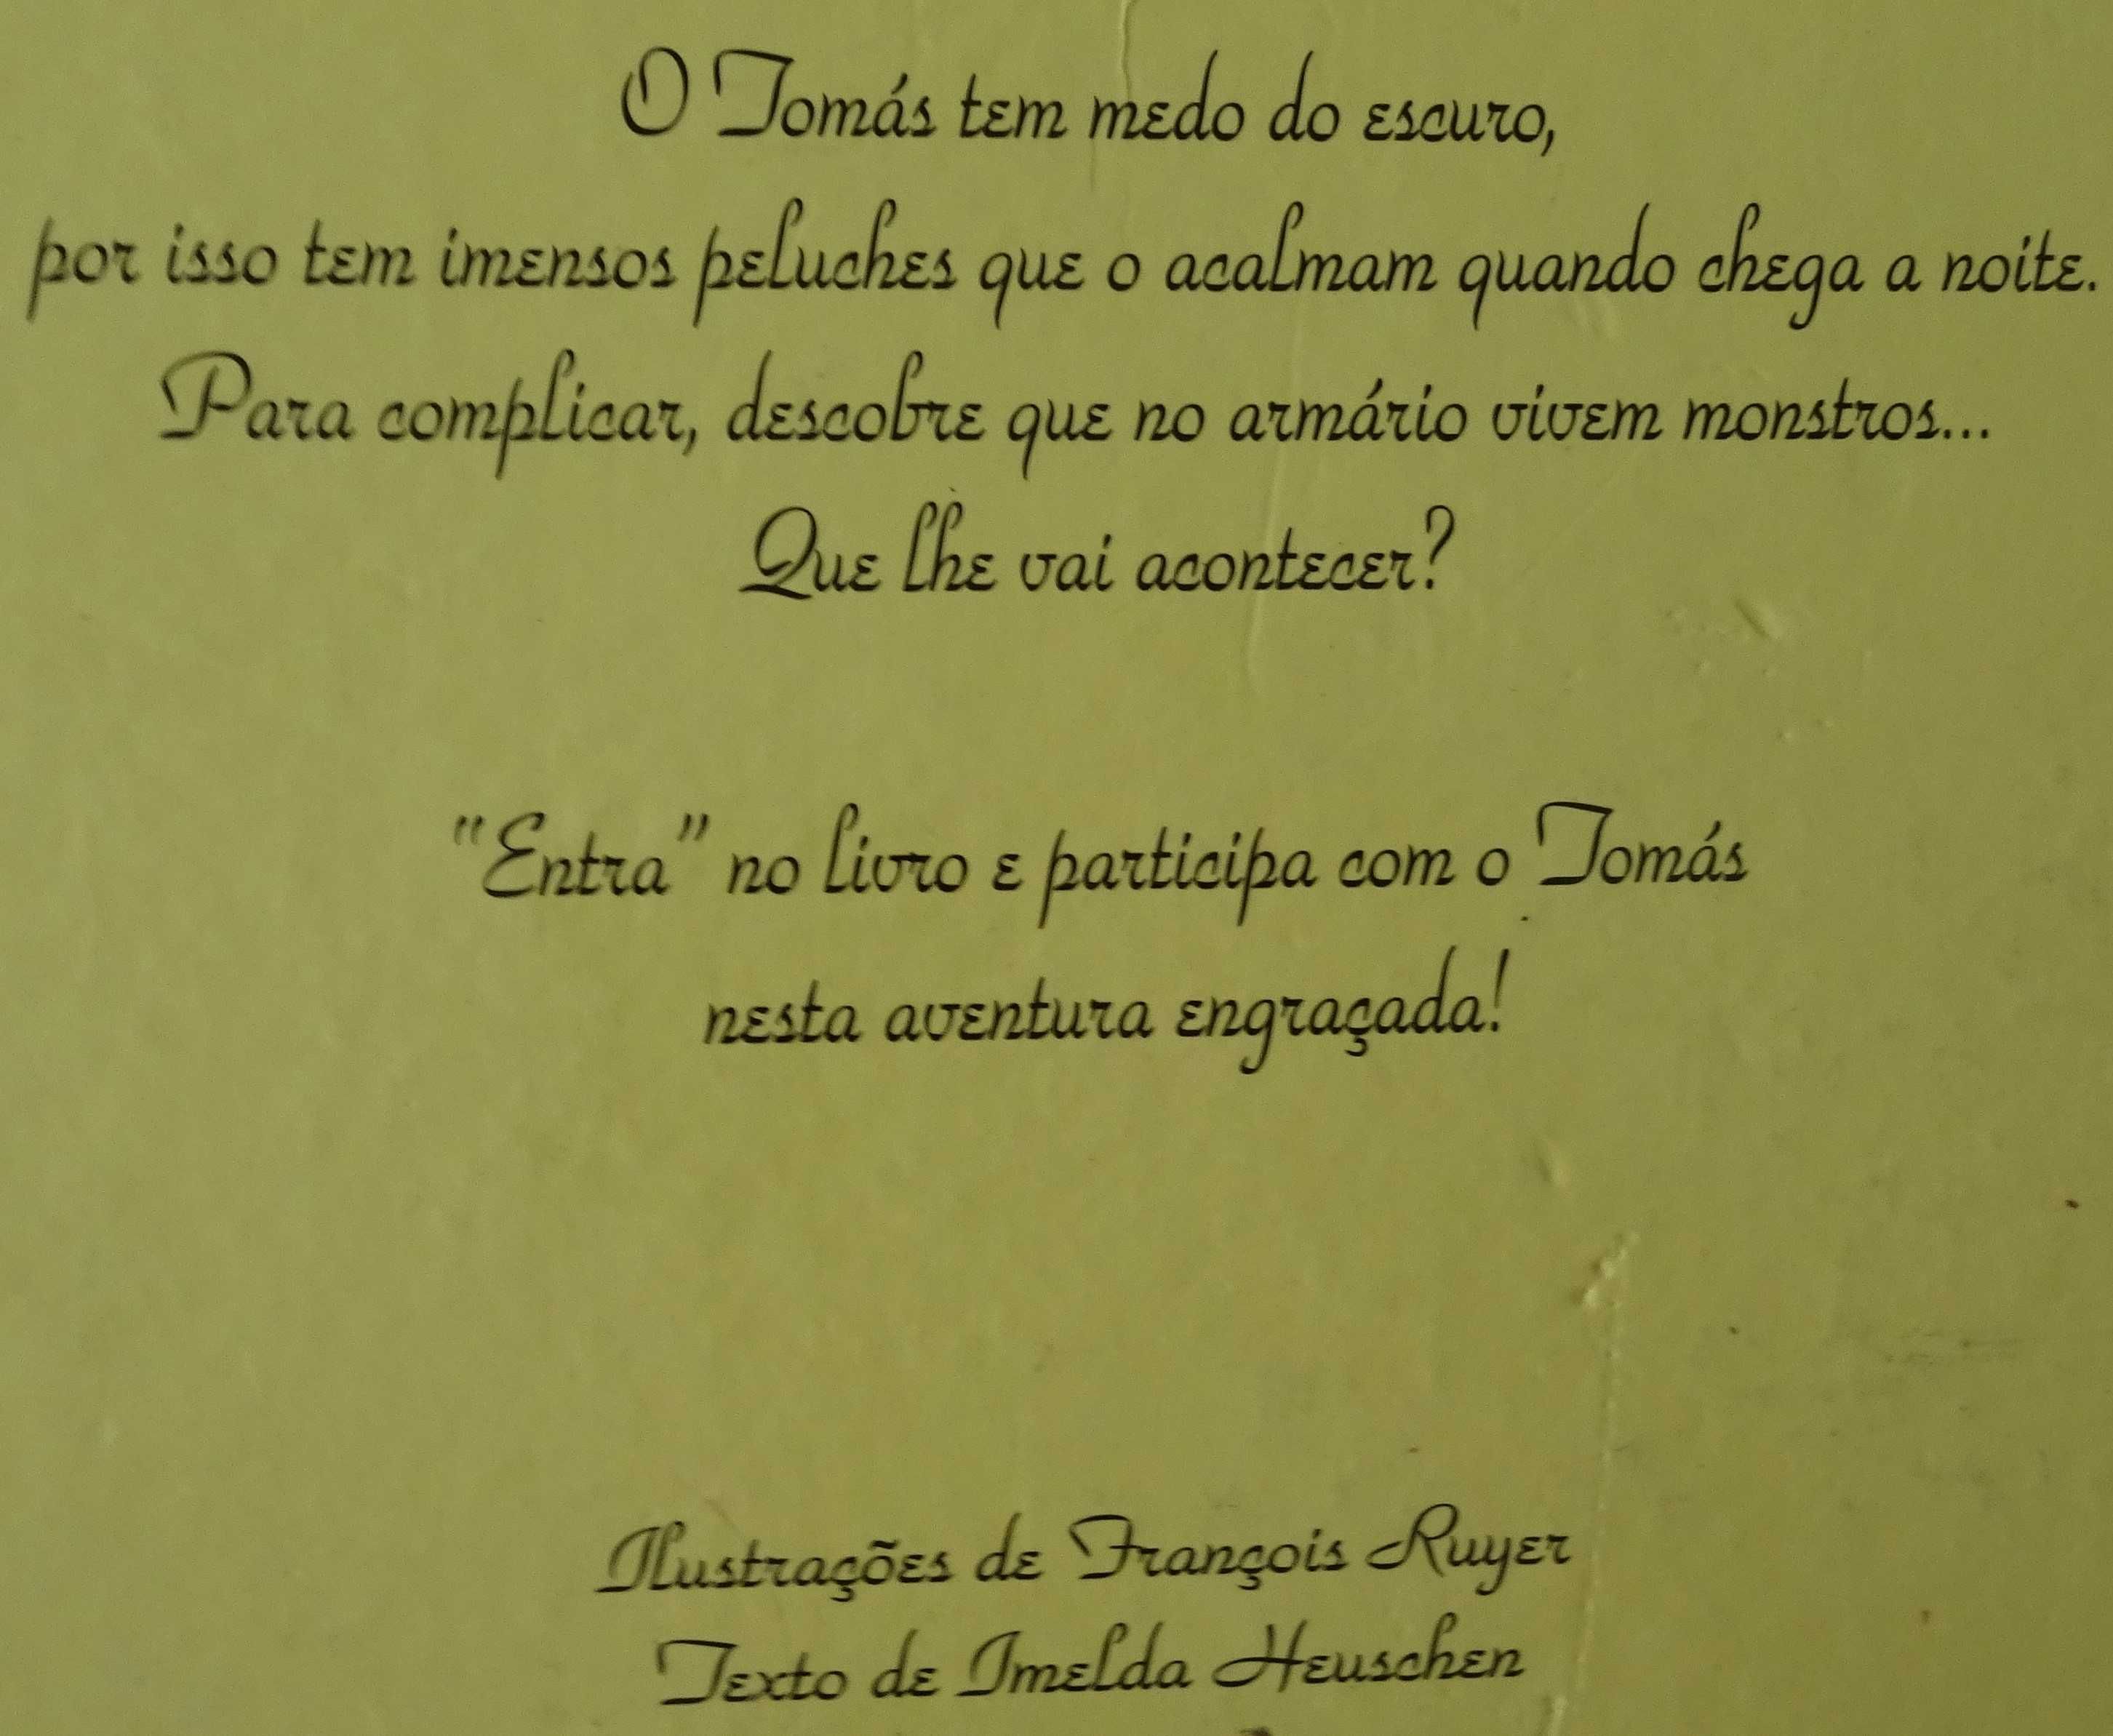 O Tomás tem medo do escuro,
por isso tem imensos peluches que o acalmam quando chega a noite.
Para complicar, descobre que no armário vivem monstros...
Que lhe vai acontecer?
"Entra" no livro e participa com o Tomás
nesta aventura engraçada!
Ilustrações de François Ruyer
Texto de Imelda Heuschen